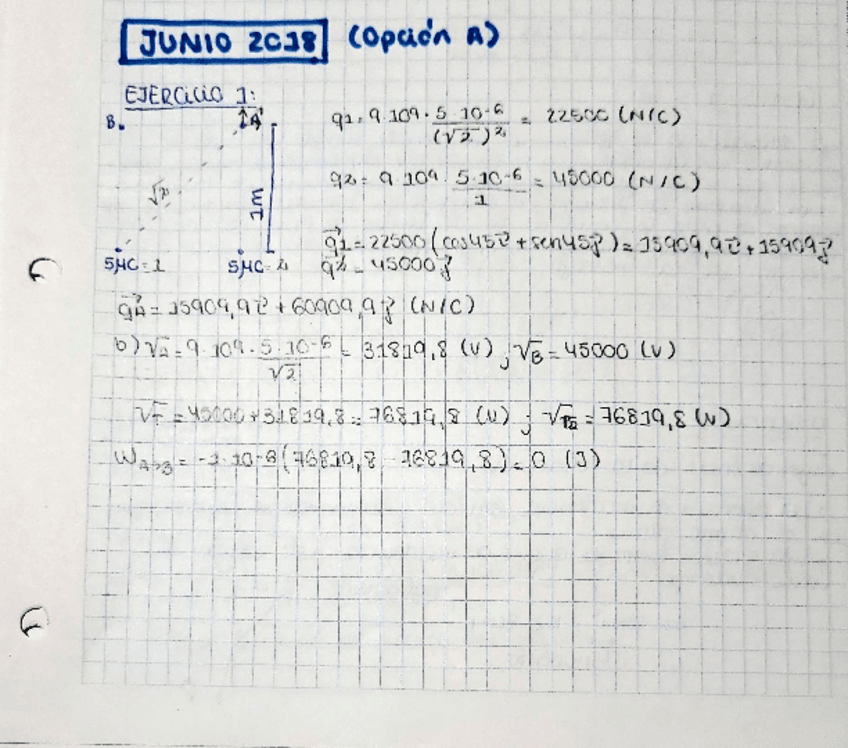 JUNIO 2018 (Opción A)
EJERCICIO 1:
B. A
√2 1m
5μC=1 5μC=2
g1= 9·109· 5·10-6 / (√2)2 = 22500 (N/C)
g2= 9·109· 5·10-6 / 1 = 45000 (N/C)
g1=22500 (cos45i + sen45j) = 15909,9i + 15909j
g2=45000j
gA= 15909,9i + 60909,9j (N/C)
b) VA=9·109· 5·10-6 / √2 = 31819,8 (V) ; VB=45000 (V)
VT=45000+31819,8=76819,8 (V) ; VTB=76819,8 (V)
WA→B = -1·10-6(76819,8-76819,8)=0 (J)